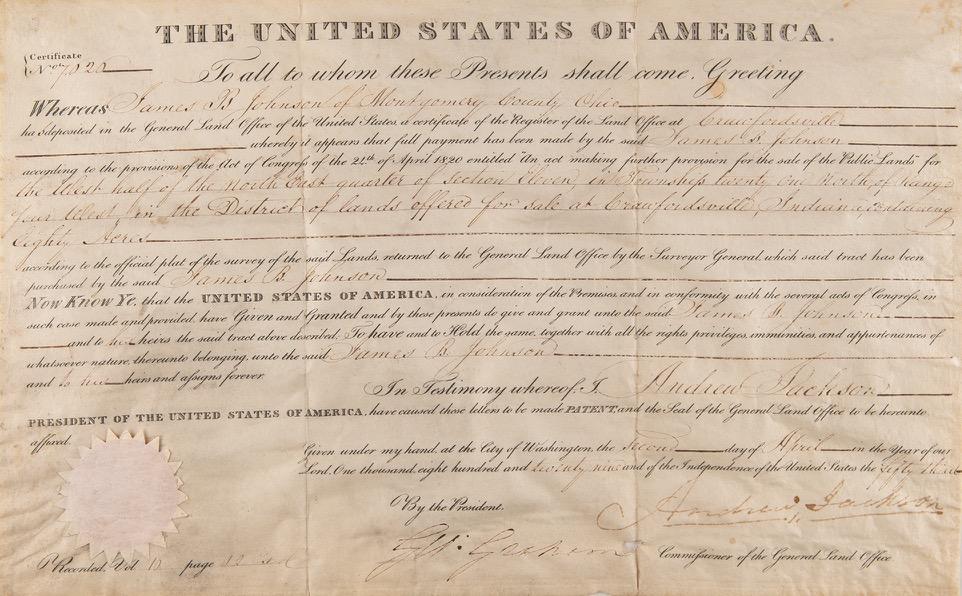 THE UNITED STATES OF AMERICA.
Certificate
No. 7820
To all to whom these Presents shall come, Greeting
Whereas James B Johnson of Montgomery County Ohio
has deposited in the General Land Office of the United States, a certificate of the Register of the Land Office at Crawfordsville
whereby it appears that full payment has been made by the said James B. Johnson
according to the provisions of the Act of Congress of the 24th of April 1820 entitled "An act making further provision for the sale of the Public Lands" for
the West half of the North East quarter of Section Eleven, in Township twenty One North, of Range
Four West, in the District of lands offered for sale at Crawfordsville Indiana, containing
Eighty Acres
according to the official plat of the survey of the said Lands, returned to the General Land Office by the Surveyor General, which said tract has been
purchased by the said James B Johnson
Now Know Ye, that the UNITED STATES OF AMERICA, in consideration of the Premises, and in conformity with the several acts of Congress, in
such case made and provided, have Given and Granted and by these presents do give and grant unto the said James B. Johnson
and to his heirs the said tract above described: To have and to Hold the same, together with all the rights, privileges, immunities, and appurtenances of
whatsoever nature, thereunto belonging, unto the said James B Johnson
and to his heirs and assigns forever.
In Testimony whereof, I, Andrew Jackson
PRESIDENT OF THE UNITED STATES OF AMERICA, have caused these letters to be made PATENT, and the Seal of the General Land Office to be hereunto
affixed.
Given under my hand, at the City of Washington, the second day of April in the Year of our
Lord, One thousand, eight hundred and twenty nine and of the Independence of the United States the fifty third
By the President. Andrew Jackson
G. W. Graham Commissioner of the General Land Office
Recorded, Vol page